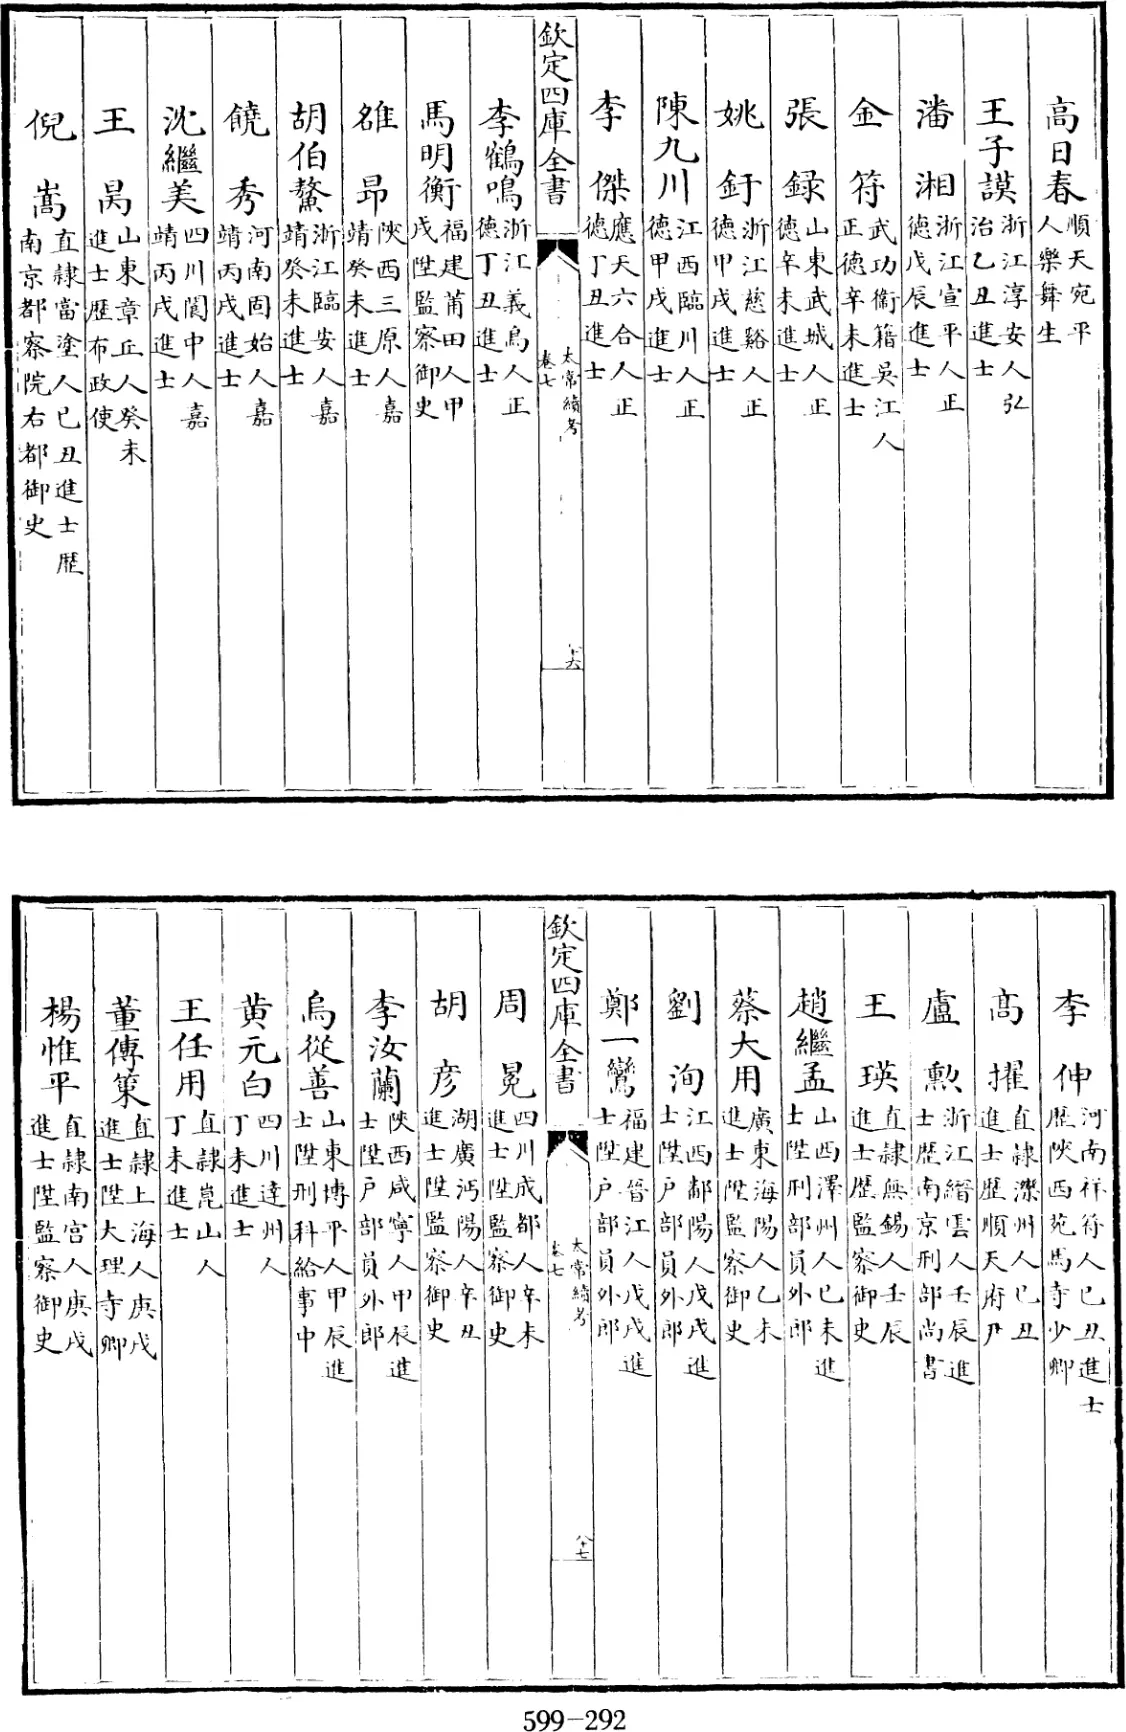 高日春順天宛平
人樂舞生
王子謨浙江淳安人弘
治乙丑進士
潘湘浙江宣平人正
德戊辰進士
金符武功衞籍吳江人
正德辛未進士
張録山東武城人正
德辛未進士
姚釪浙江慈谿人正
德甲戌進士
陳九川江西臨川人正
德甲戌進士
李傑應天六合人正
德丁丑進士
欽定四庫全書
太常續考
卷七
李鶴鳴浙江義烏人正
德丁丑進士
馬明衡福建莆田人甲
戌陞監察御史
雒昂陜西三原人嘉
靖癸未進士
胡伯鰲浙江臨安人嘉
靖癸未進士
饒秀河南固始人嘉
靖丙戌進士
沈繼美四川閬中人嘉
靖丙戌進士
王昺山東章丘人癸未
進士歴布政使
倪嵩直隸當塗人已丑進士歴
南京都察院右都御史
李伸河南祥符人已丑進士
歴陜西苑馬寺少卿
高擢直隸灤州人已丑
進士歴順天府尹
盧勲浙江縉雲人壬辰進
士歴南京刑部尚書
王瑛直隸無錫人壬辰
進士歴監察御史
趙繼孟山西澤州人已未進
士陞刑部員外郎
蔡大用廣東海陽人乙未
進士陞監察御史
劉洵江西鄱陽人戊戌進
士陞户部員外郎
鄭一鸞福建晉江人戊戌進
士陞户部員外郎
欽定四庫全書
太常續考
卷七
八十七
周冕四川成都人辛未
進士陞監察御史
胡彦湖廣沔陽人辛丑
進士陞監察御史
李汝蘭陜西咸寧人甲辰進
士陞户部員外郎
烏從善山東博平人甲辰進
士陞刑科給事中
黄元白四川達州人
丁未進士
王任用直隸崑山人
丁未進士
董傳策直隸上海人庚戌
進士陞大理寺卿
楊惟平直隸南宫人庚戌
進士陞監察御史
599-292